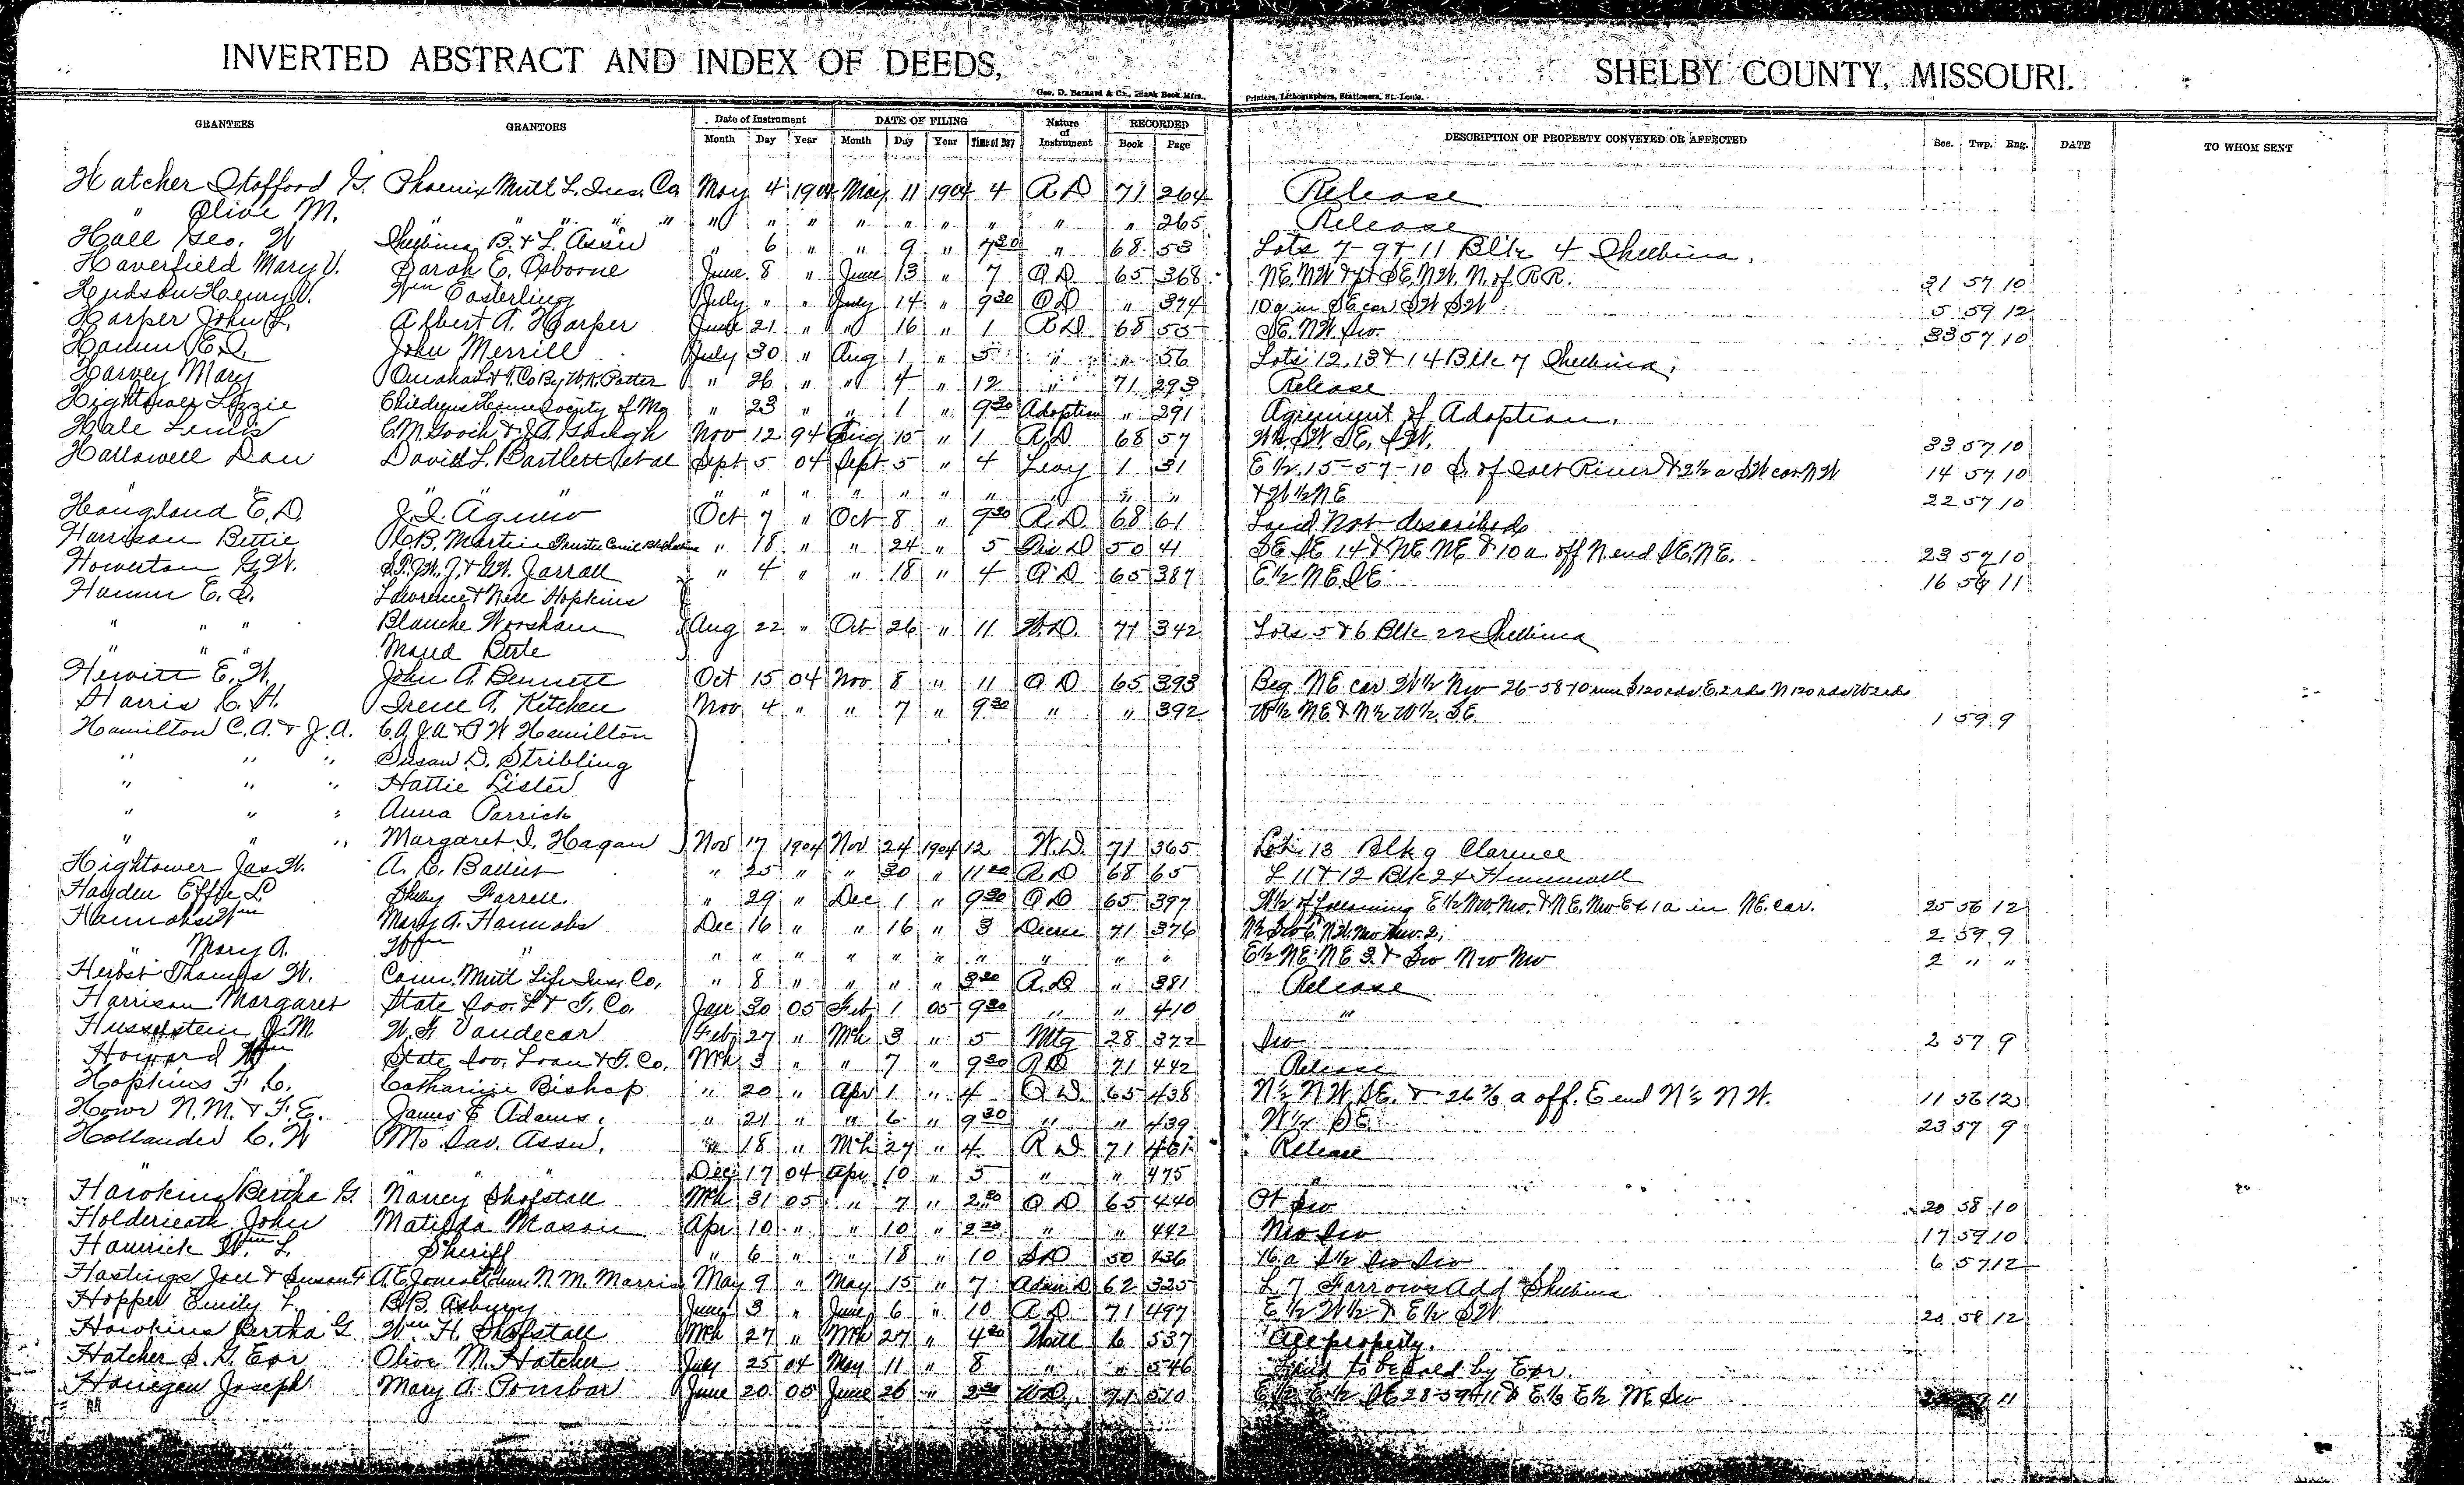 INVERTED ABSTRACT AND INDEX OF DEEDS, SHELBY COUNTY, MISSOURI.
Geo. D. Barnard & Co., Blank Book Mfrs., Printers, Lithographers, Stationers, St. Louis.
GRANTEES GRANTORS Date of Instrument DATE OF FILING Nature of Instrument RECORDED DESCRIPTION OF PROPERTY CONVEYED OR AFFECTED Sec. Twp. Rng. DATE TO WHOM SENT
Month Day Year Month Day Year Time of Day Book Page
Hatcher Stofford G. Phoenix Mutl L. Ins. Co May 4 1904 May 11 1904 4 R D 71 264 Release
" Olive M. " " " " " " " " " " " " " " 265 Release
Hall Geo. W Shelbina B. & L. Assn " 6 " " 9 " 7 30 " 68 53 Lots 7-9 & 11 Blk 4 Shelbina.
Haverfield Mary V. Sarah E. Osborne June 8 " June 13 " 7 Q D 65 368 NE. NW & pt SE. NW. N. of R.R. 31 57 10
Hudson Henry V. Wm Easterling July " " July 14 " 9 30 Q D " 374 10 a in SE cor SW SW 5 59 12
Harper John L. Albert A. Harper June 21 " " 16 " 1 R D 68 55 SE. NW. Sw. 33 57 10
Hamm E. D. John Merrill July 30 " Aug 1 " 5 " " 56 Lots 12, 13 & 14 Blk 7 Shelbina,
Harvey Mary Omaha L & T. Co By W. K. Potter " 26 " " 4 " 12 " 71 293 Release
Hightower Lizzie Childrens Home Society of Mo " 23 " " 1 " 9 30 Adoption " 291 Agreement of Adoption.
Hale Lewis C. M. Gooch & J. A. Gough Nov 12 94 Aug 15 " 1 R D 68 57 SW. SE. SW. 33 57 10
Hallowell Dan David L. Bartlett et al Sept 5 04 Sept 5 " 4 Levy 1 31 E 1/2. 15-57-10 S. of Salt River & 2 1/2 a SW cor. NW 14 57 10
" " " " " " " " " " " " & W 1/2 NE 22 57 10
Hougland E. D. J. I. Agnew Oct 7 " Oct 8 " 9 30 R. D. 68 61 Land Not described
Harrison Bettie R. B. Martin Trustee " 18 " " 24 " 5 50 41 SE SE 14 & NE NE & 10 a. off N. end SE. NE. 23 57 10
Howerton G. W. S. T. J. W. J. & G. W. Jarrell " 4 " " 18 " 4 Q D 65 387 E 1/2 NE. SE 16 56 11
Hamm E. D. Lawrence & Nell Hopkins
" " " Blanche Worsham Aug 22 " Oct 26 " 11 W. D. 71 342 Lots 5 & 6 Blk 22 Shelbina
" " " Maud Berte
Hewitt E. W. John A Bennett Oct 15 04 Nov 8 " 11 Q D 65 393 Beg NE cor W 1/2 Nw 26-58-10 run S 120 rds E. 2 rds N 120 rds W 2 rds
Harris C. H. Irene A. Kitchen Nov 4 " " 7 " 9 30 " " 392 W 1/2 NE & N 1/2 W 1/2 SE. 1 59 9
Hamilton C. A. & J. A. C. A, J. A. & P. W Hamilton
" " " Susan D. Stribling
" " " Hattie Lister
" " " Anna Parrick
" " " Margaret I. Hagan Nov 17 1904 Nov 24 1904 12 W. D. 71 365 Lot 13 Blk 9 Clarence
Hightower Jas W. A. C. Balliet " 25 " " 30 " 11 R D 68 65 L 11 & 12 Blk 24 Hunnewell
Hayden Effie L Farrell " 29 " Dec 1 " 9 30 Q D 65 397 N 1/2 of following E 1/2 Nw. Nw. & NE. Nw Ex 1 a in NE. cor. 25 56 12
Hannahs Wm Mary A. Hannahs Dec 16 " " 16 " 3 Decree 71 376 2 59 9
" Mary A. Wm " " " " " " " " " " " E 1/2 NE NE 3. & Sw Nw Nw 2 " "
Herbst Thomas W. Conn. Mutl Life Ins. Co, " 8 " " " " 3 30 R. D " 381 Release
Harrison Margaret State Sav. L & T. Co. Jan 30 05 Feb 1 05 9 30 " " 410 "
Husselstein J. M. W. F. Vandecar Feb 27 " Mch 3 " 5 Mtg 28 372 Sw 2 57 9
Howard Wm State Sav. Loan & T. Co. Mch 3 " " 7 " 9 30 R D 71 442 Release
Hopkins F. C. Catharine Bishop " 20 " Apr 1 " 4 Q D. 65 438 N 1/2 NW SE. & 26 2/3 a off. E end N 1/2 NW. 11 56 12
Howe N. M. & F. E. James E Adams. " 21 " " 6 " 9 30 " " 439 W 1/2 SE 23 57 9
Hollander C. W Mo Sav. Assn. " 18 " Mch 27 " 4 R D 71 461 Release
" " " Dec 17 04 Apr 10 " 5 " " 475 "
Hawkins Bertha G. Nancy Shofstall Mch 31 05 " 7 " 2 30 Q D 65 440 Pt Sw 20 58 10
Holderieath John Matilda Mason Apr 10 " " 10 " 2 30 " " 442 Nw Sw 17 59 10
Hamrick Wm L. Sheriff " 6 " " 18 " 10 S D 50 436 16 a S 1/2 Sw Sw 6 57 12
Hastings Joel & Susan F A. E. Jones N. M. Marris May 9 " May 15 " 7 Adm D 62 325 L 7 Farrows Add Shelbina
Hopper Emily L. B. B. Asbury June 3 " June 6 " 10 R D 71 497 E 1/2 W 1/2 & E 1/2 SW 20 58 12
Hawkins Bertha G Wm H. Shofstall Mch 27 " Mch 27 " 4 30 Will 6 537 All property.
Hatcher S. G. Exr Olive M. Hatcher July 25 04 May 11 " 8 " " 546 Land to be sold by Exr.
Hanegan Joseph Mary A. Ponsbar June 20 05 June 26 " 2 30 W D. 71 510 E 1/2 E 1/2 SE 28-59-11 & E 1/2 E 1/2 NE Sw 11